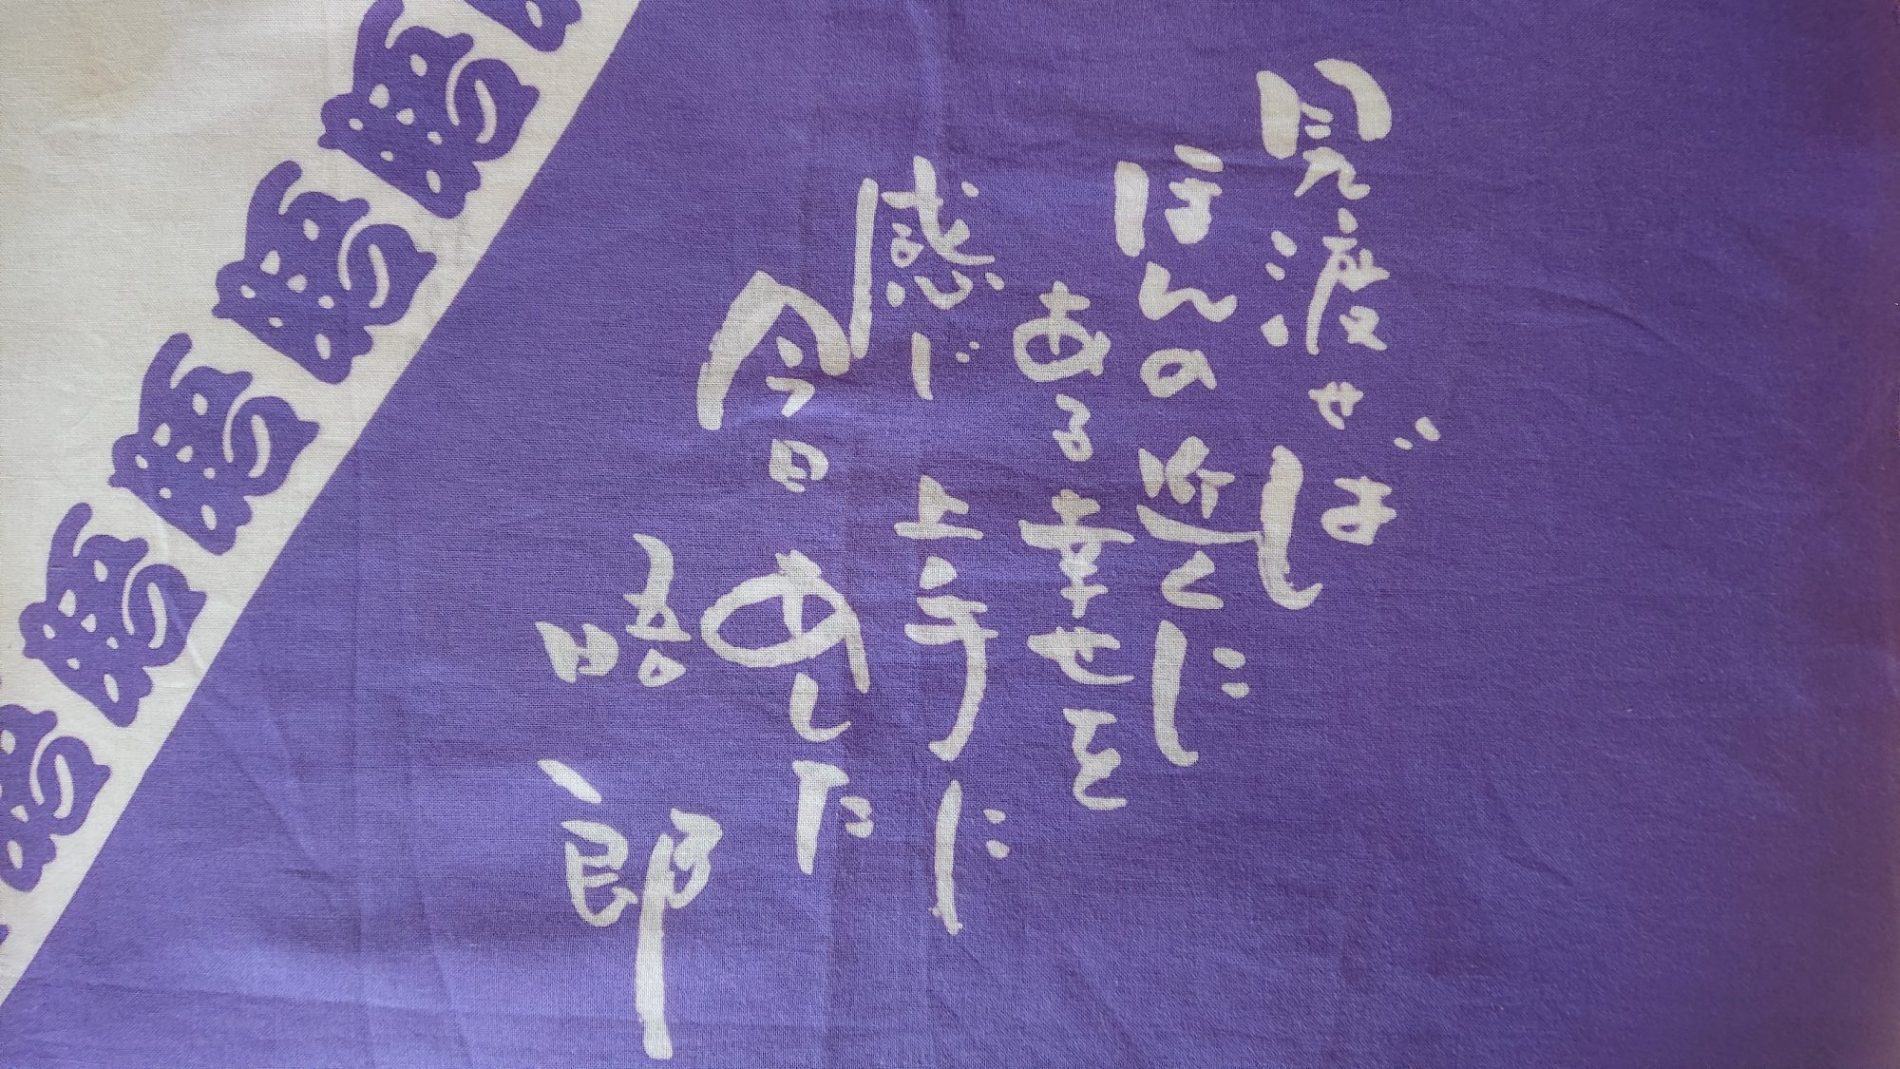 見渡せば
ほんの近くに
ある幸せを
感じ上手に
今日あした
郎